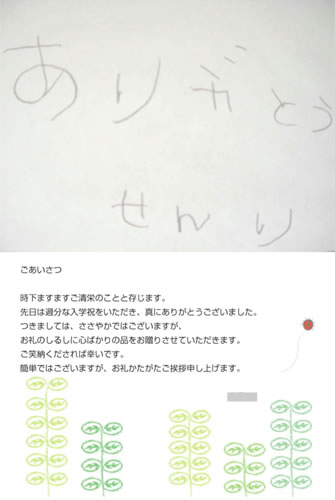 ありがとう
せんり
ごあいさつ
時下ますますご清栄のことと存じます。
先日は過分な入学祝をいただき、真にありがとうございました。
つきましては、ささやかではございますが、
お礼のしるしに心ばかりの品をお贈りさせていただきます。
ご笑納くだされば幸いです。
簡単ではございますが、お礼かたがたご挨拶申し上げます。